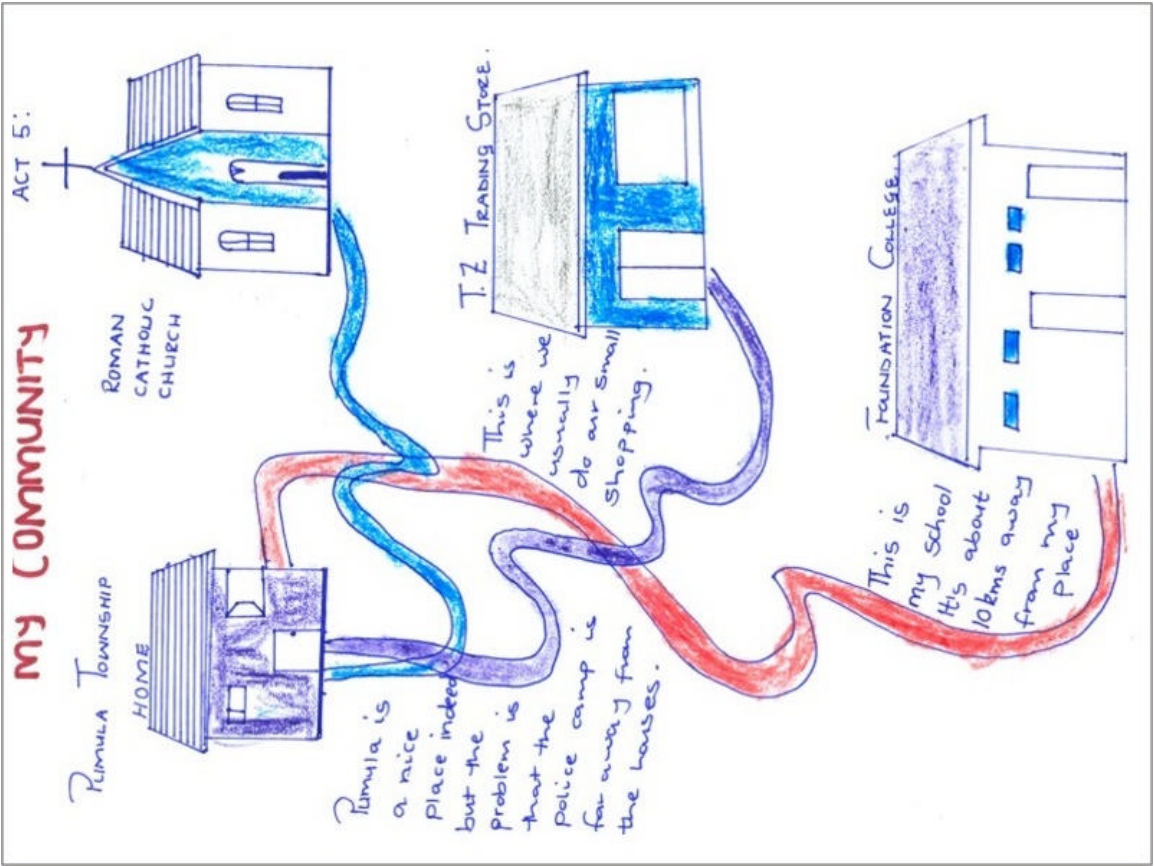 MY COMMUNITY
ACT 5:
PUMULA TOWNSHIP
HOME
ROMAN
CATHOLIC
CHURCH
Pumula is
a nice
place indeed
but the
problem is
that the
police camp is
far away from
the houses.
T.Z TRADING STORE.
This is
where we
usually
do our small
shopping.
FOUNDATION COLLEGE.
This is
my school
It's about
10kms away
from my
place